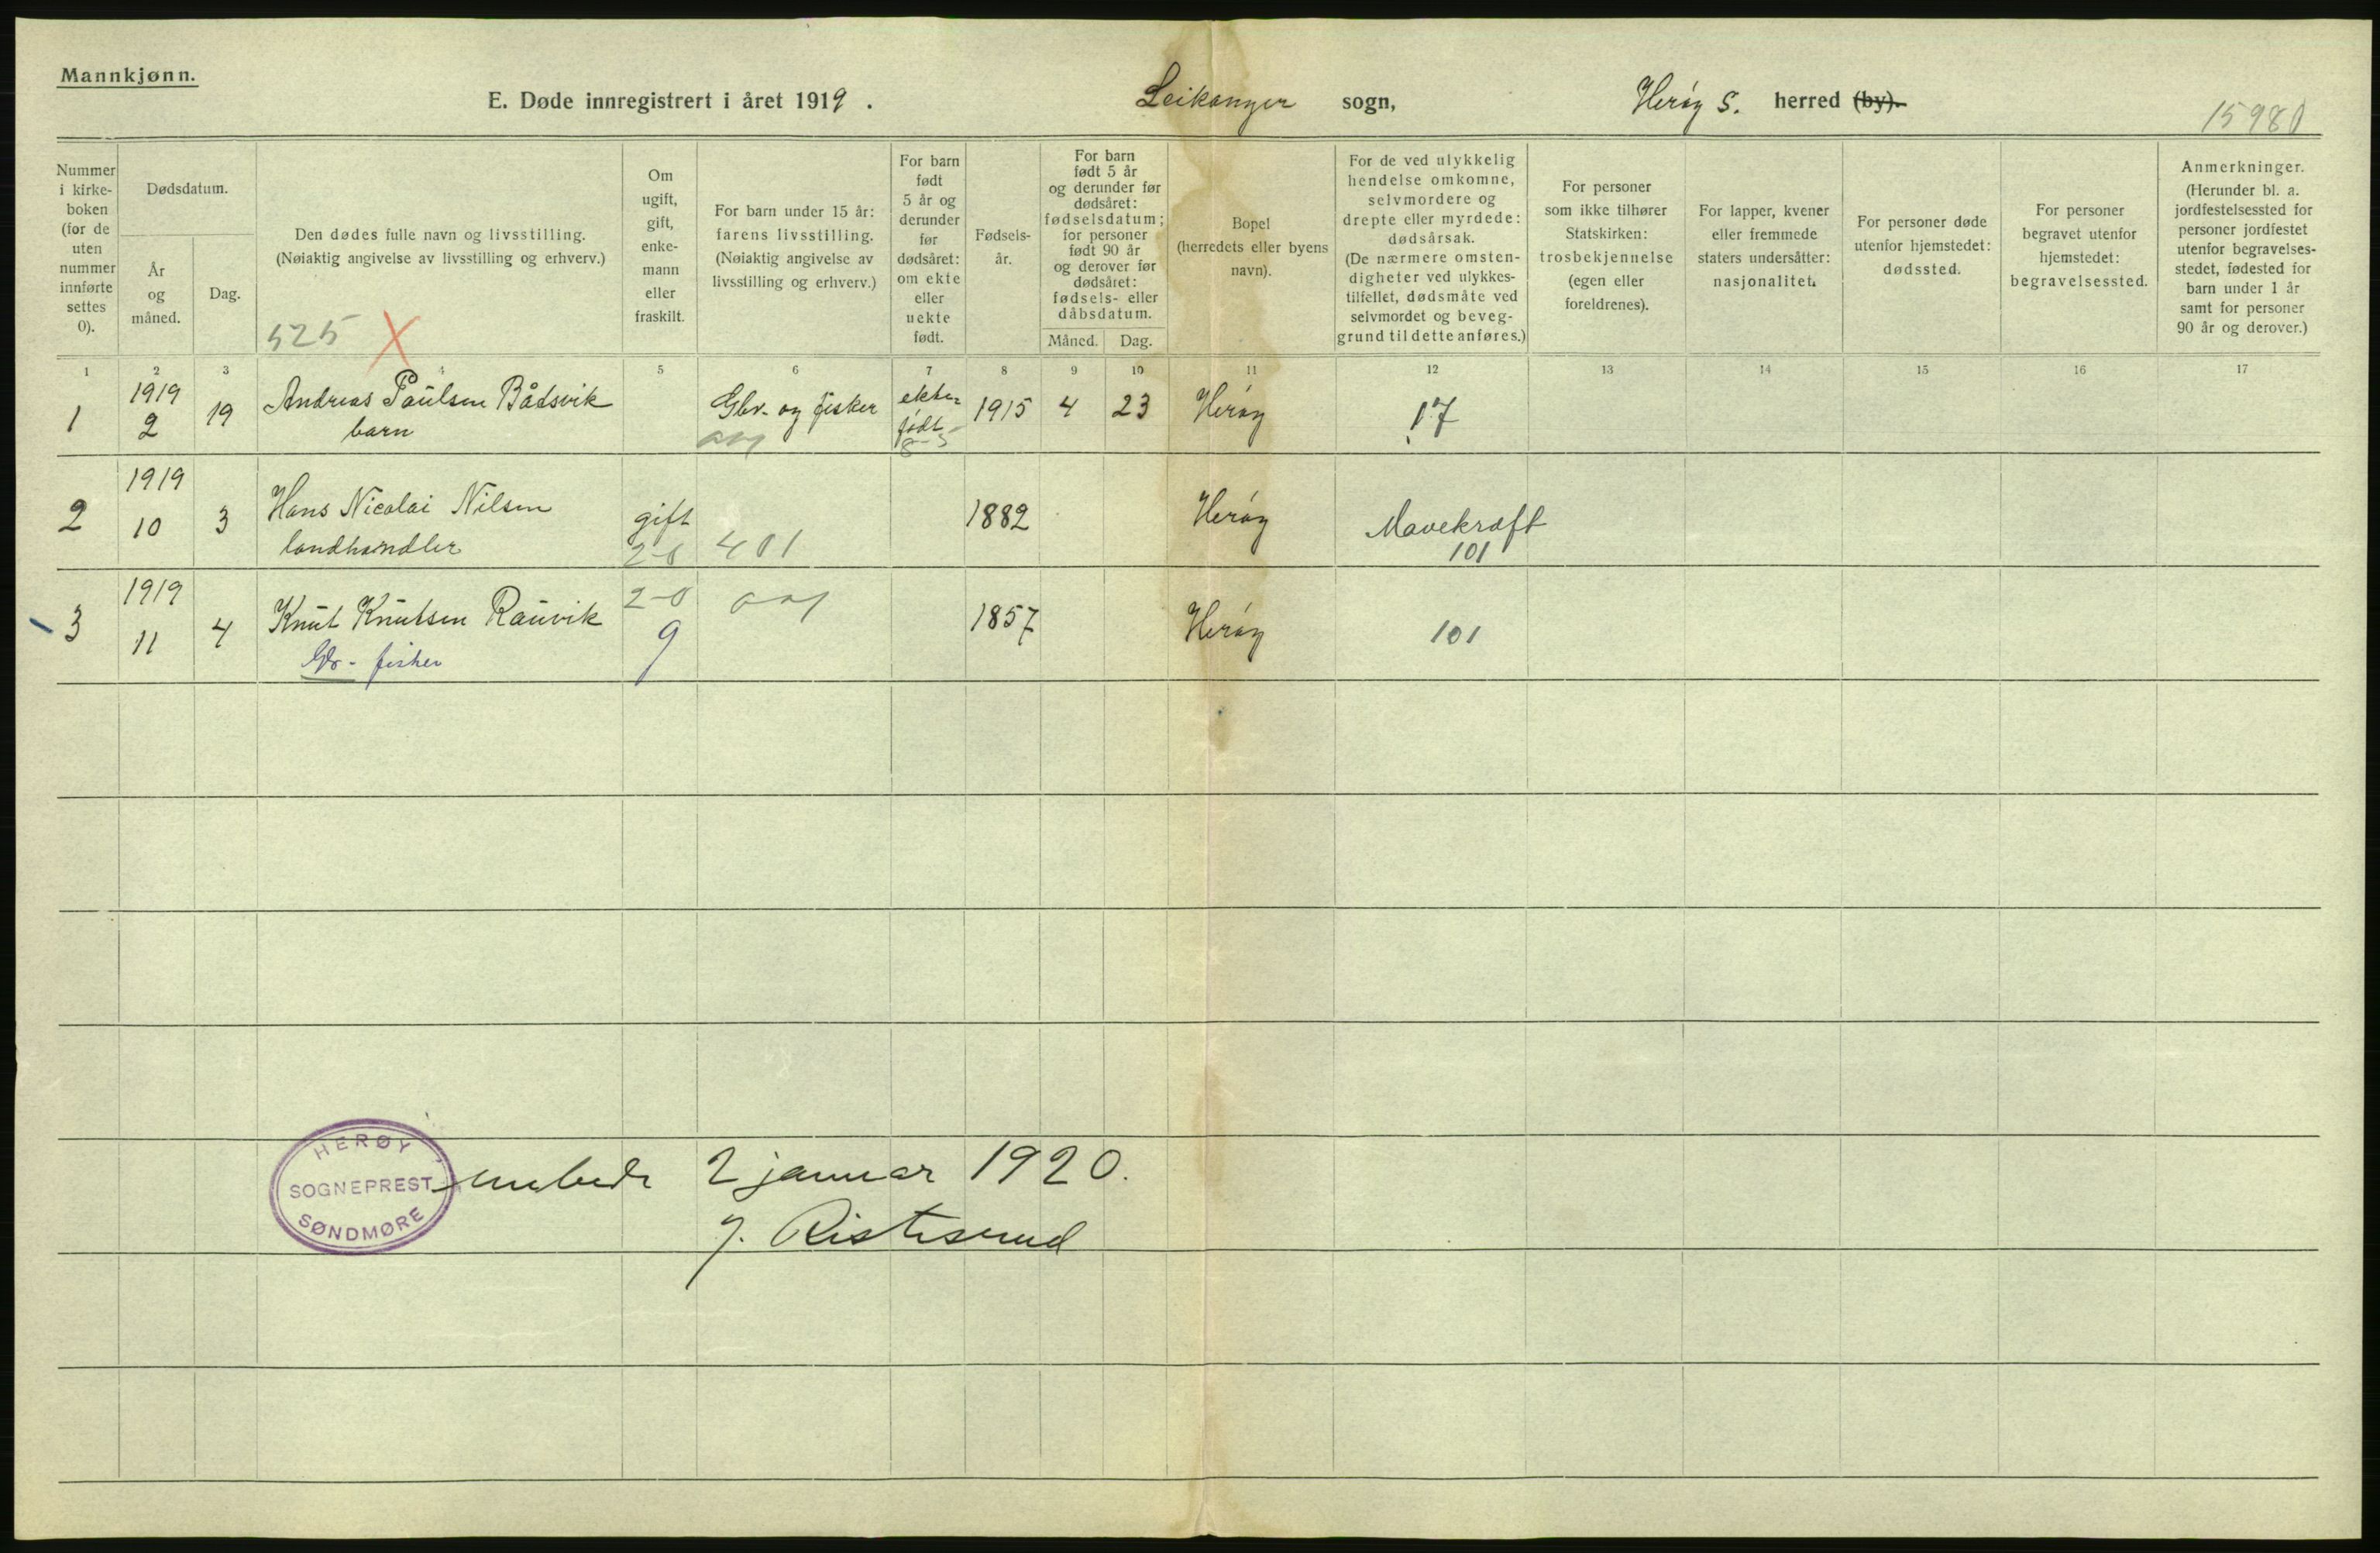 Mannkjønn.
E. Døde innregistrert i året 1919 . Leikanger sogn, Herøy S. herred (by).
15980
Nummer i kirke- boken (for de uten nummer innførte settes 0).
Dødsdatum.
År og måned.
Dag.
Den dødes fulle navn og livsstilling.
(Nøiaktig angivelse av livsstilling og erhverv.)
525 X
Om ugift, gift, enke- mann eller fraskilt.
For barn under 15 år: farens livsstilling. (Nøiaktig angivelse av livsstilling og erhverv.)
For barn født 5 år og derunder før dødsåret: om ekte eller uekte født.
Fødsels- år.
For barn født 5 år og derunder før dødsåret: fødselsdatum; for personer født 90 år og derover før dødsåret: fødsels- eller dåbsdatum.
Måned. Dag.
Bopel (herredets eller byens navn).
For de ved ulykkelig hendelse omkomne, selvmordere og drepte eller myrdede: dødsårsak. (De nærmere omsten- digheter ved ulykkes- tilfellet, dødsmåte ved selvmordet og beveg- grund til dette anføres.)
For personer som ikke tilhører Statskirken: trosbekjennelse (egen eller foreldrenes).
For lapper, kvener eller fremmede staters undersåtter: nasjonalitet.
For personer døde utenfor hjemstedet: dødssted.
For personer begravet utenfor hjemstedet: begravelsessted.
Anmerkninger. (Herunder bl. a. jordfestelsessted for personer jordfestet utenfor begravelses- stedet, fødested for barn under 1 år samt for personer 90 år og derover.)
1 2 3 4 5 6 7 8 9 10 11 12 13 14 15 16 17
1 1919 2 19 Andreas Paulsen Bådsvik barn Gbr. og fisker ekte- født 1915 4 23 Herøy 17
2 1919 10 3 Hans Nicolai Nilsen landhandler gift 2-0 401 1882 Herøy Mavekræft 101
3 1919 11 4 Knut Knutsen Rauvik Gbr - fisker 2-0 g 1857 Herøy 101
HERØY
SOGNEPREST
SØNDMØRE
embede 2 januar 1920.
J. Ristesund